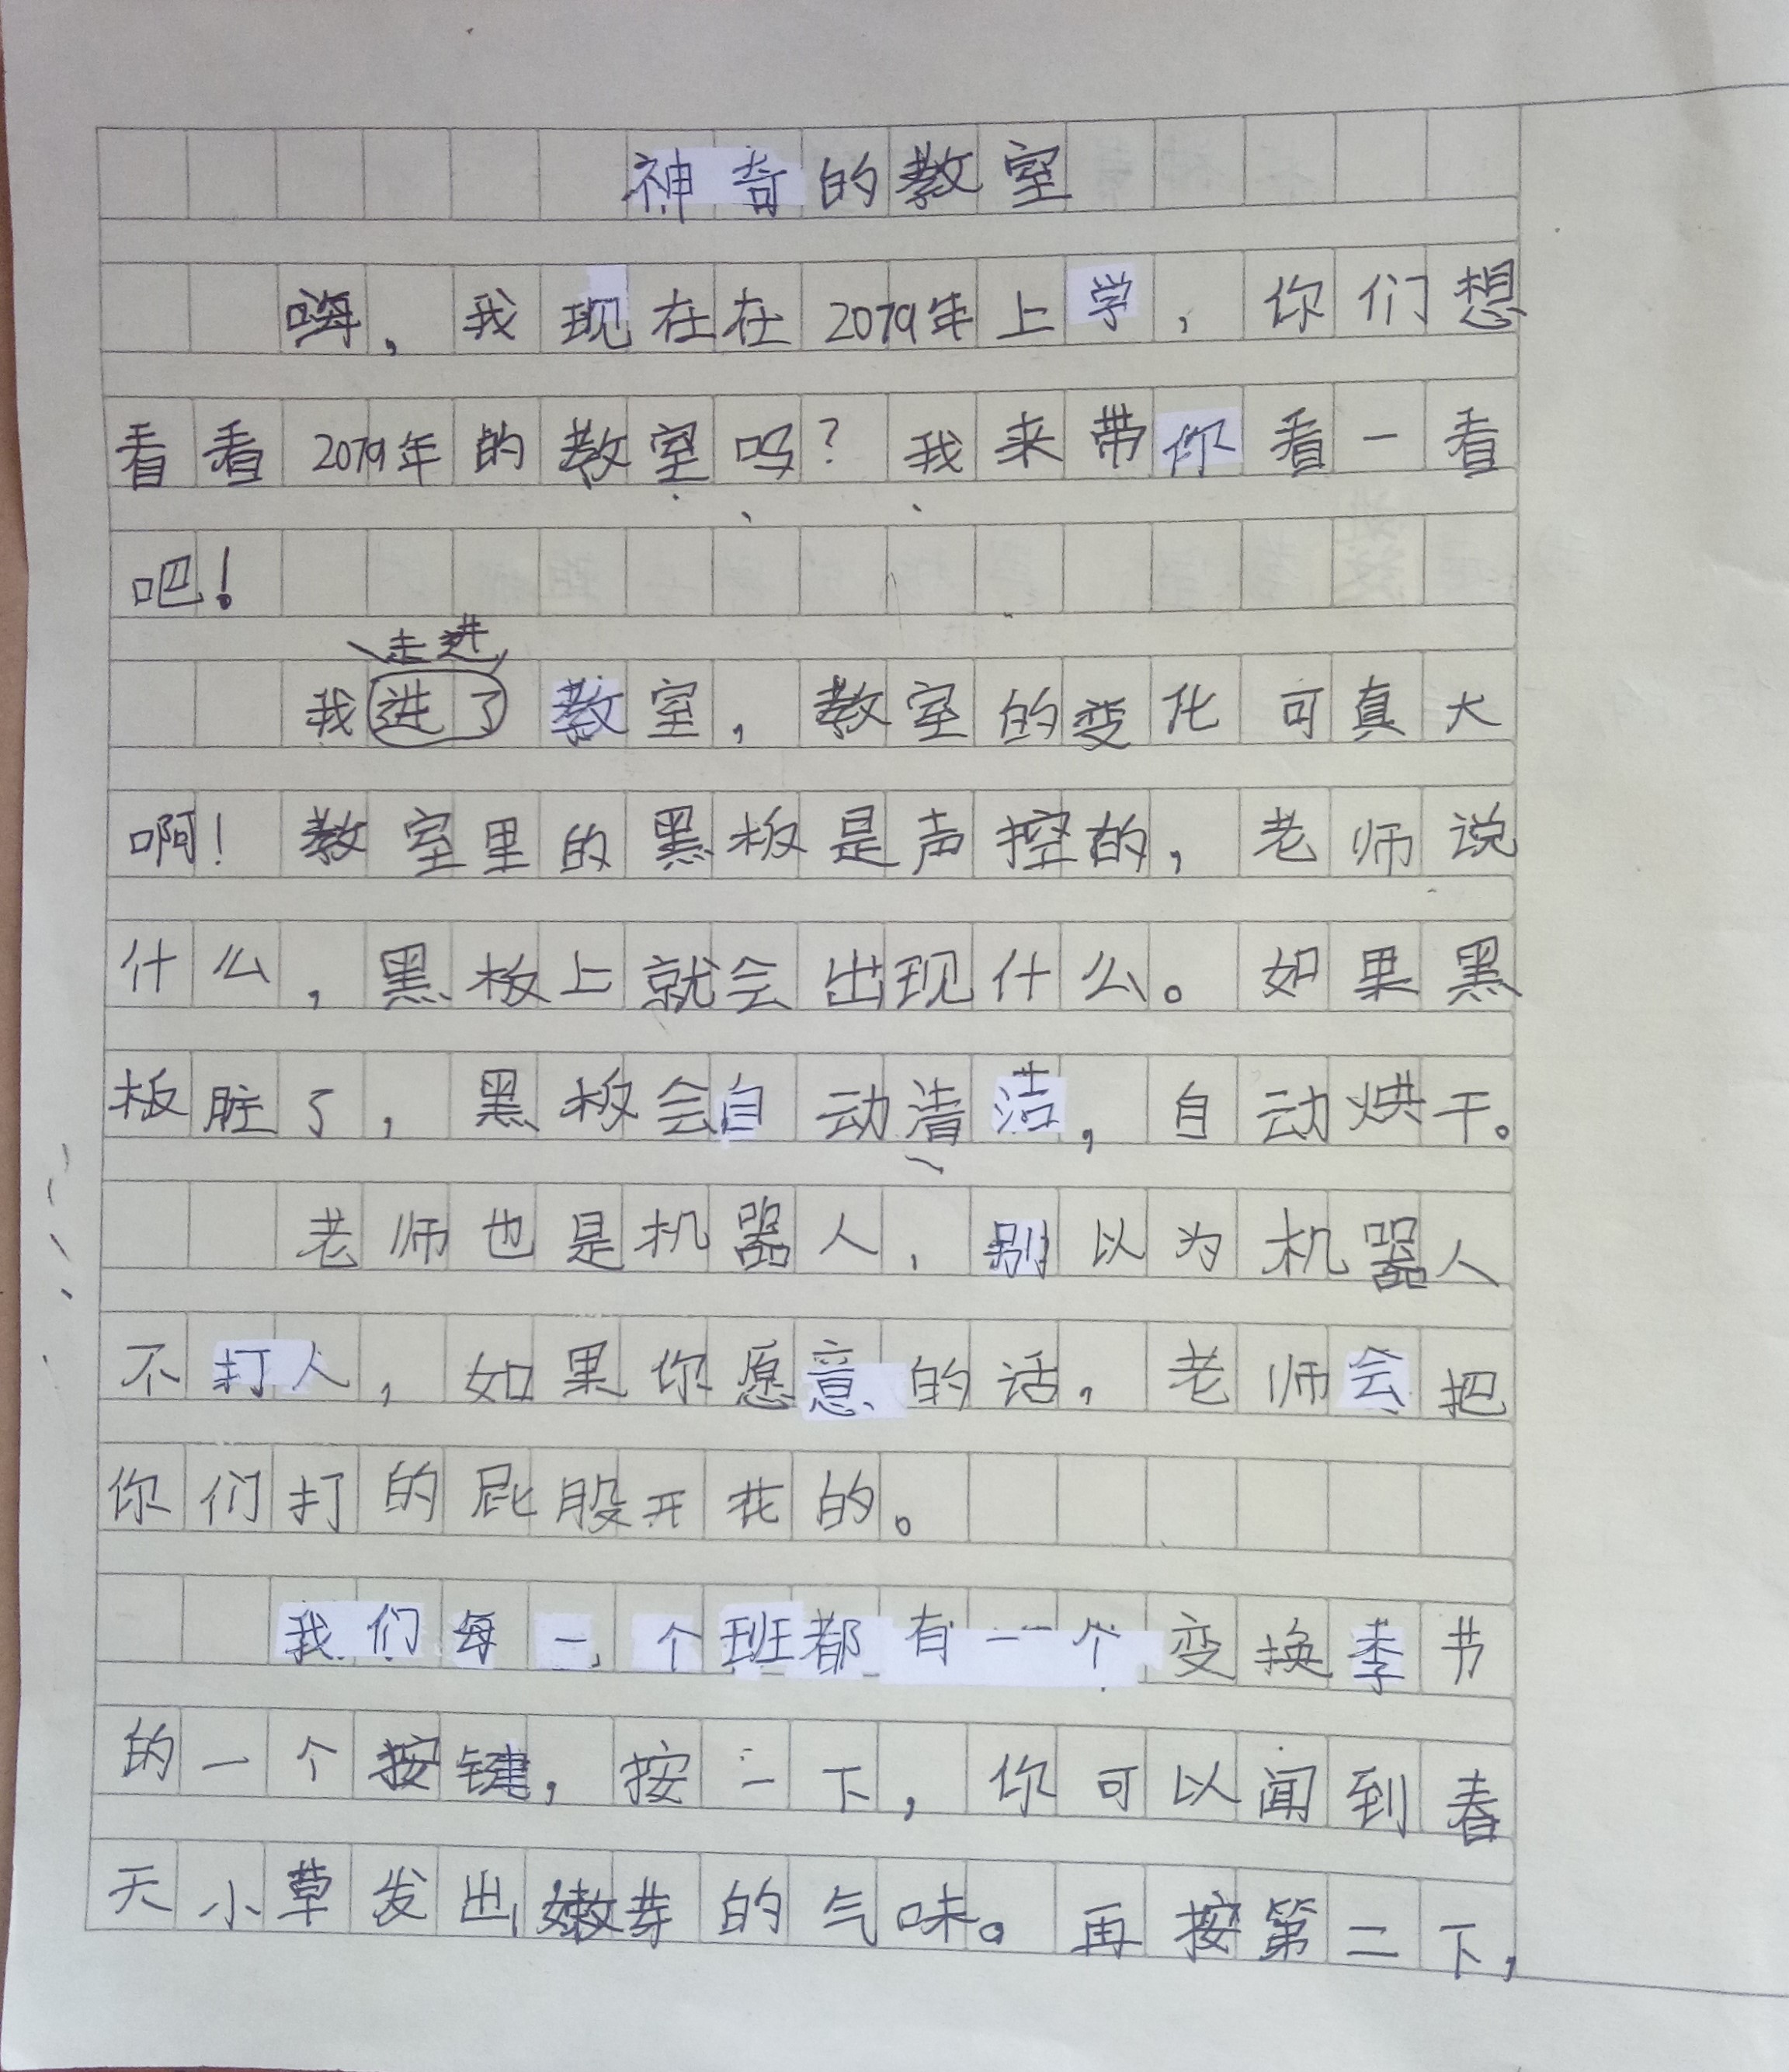 神奇的教室
嗨，我现在在2079年上学，你们想
看看2079年的教室吗？我来带你看一看
吧！
走进
我进了教室，教室的变化可真大
啊！教室里的黑板是声控的，老师说
什么，黑板上就会出现什么。如果黑
板脏了，黑板会自动清洁，自动烘干。
老师也是机器人，别以为机器人
不打人，如果你愿意的话，老师会把
你们打的屁股开花的。
我们每一个班都有一个变换季节
的一个按键，按一下，你可以闻到春
天小草发出嫩芽的气味。再按第二下，